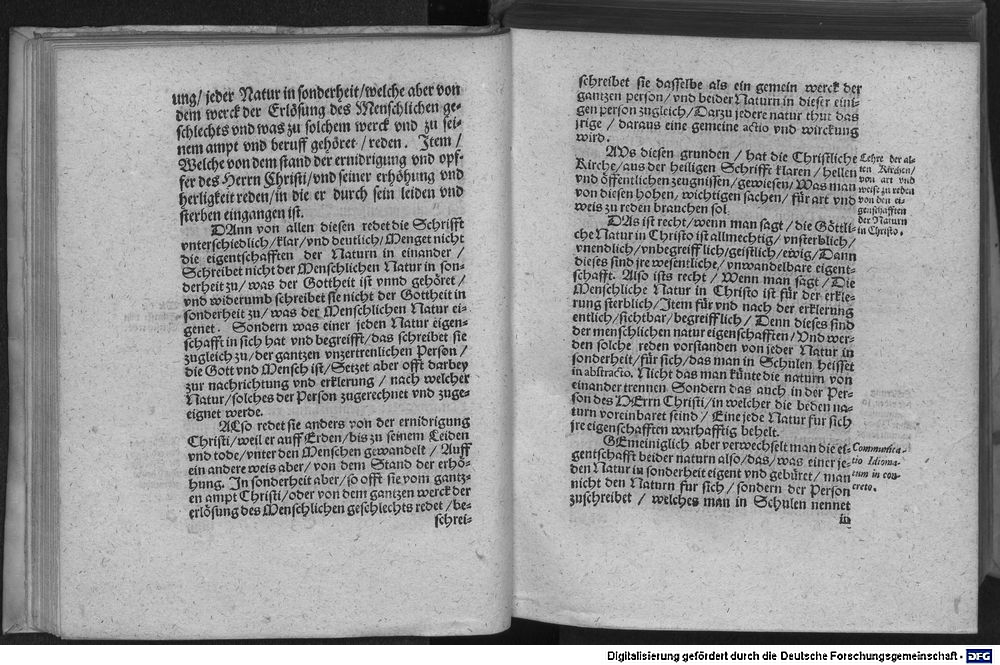 ung/ jeder Natur in sonderheit/welche aber von
dem werck der Erlösung des Menschlichen ge-
schlechts vnd was zu solchem werck vnd zu sei-
nem ampt vnd beruff gehöret / reden. Item /
Welche von dem stand der ernidrigung vnd opf-
fer des Herrn Christi/vnd seiner erhöhung vnd
herligkeit reden/in die er durch sein leiden vnd
sterben eingangen ist.
DAnn von allen diesen redet die Schrifft
vnterschiedlich/klar/vnd deutlich/Menget nicht
die eigentschafften der Naturn in einander /
Schreibet nicht der Menschlichen Natur in son-
derheit zu/ was der Gottheit ist vnnd gehöret/
vnd widerumb schreibet sie nicht der Gottheit in
sonderheit zu/ was der Menschlichen Natur ei-
genet. Sondern was einer jeden Natur eigen-
schafft in sich hat vnd begreifft/das schreibet sie
zugleich zu/der gantzen vnzertrenlichen Person/
die Gott vnd Mensch ist/Setzet aber offt darbey
zur nachrichtung vnd erklerung / nach welcher
Natur/solches der Person zugerechnet vnd zuge-
eignet werde.
ALso redet sie anders von der ernidrigung
Christi/weil er auff Erden/bis zu seinem Leiden
vnd tode/vnter den Menschen gewandelt / Auff
ein andere weis aber/ von dem Stand der erhö-
hung. In sonderheit aber/so offt sie vom gantz-
en ampt Christi/oder von dem gantzen werck der
erlösung des Menschlichen geschlechts redet /be-
schrei-
schreibet sie dasselbe als ein gemein werck der
gantzen person / vnd beider Naturn in dieser eini-
gen person zugleich/Darzu jedere natur thut das
jrige / daraus eine gemeine actio vnd wirckung
wird.
AVs diesen grunden / hat die Christliche
Kirche/aus der heiligen Schrifft klaren / hellen
vnd öffentlichen zeugnissen/gewiesen/Was man
von diesen hohen/ wichtigen sachen / für art vnd
weis zu reden brauchen sol.
Lehre der al-
ten Kirchen/
von art vnd
weise zu reden
von den ei-
genschafften
der Naturn
in Christo.
DAs ist recht / wenn man sagt / die Göttli-
che Natur in Christo ist allmechtig / vnsterblich/
vnendlich/vnbegreifflich/geistlich/ewig/Dann
dieses sind jre wesentliche / vnwandelbare eigent-
schafft. Also ists recht / Wenn man sagt / Die
Menschliche Natur in Christo ist für der erkle-
rung sterblich/Item für vnd nach der erklerung
entlich/sichtbar/begreifflich/ Denn dieses sind
der menschlichen natur eigenschafften/Vnd wer-
den solche reden vorstanden von jeder Natur in
sonderheit/für sich/das man in Schulen heisset
in abstracto. Nicht das man künte die naturn von
einander trennen Sondern das auch in der Per-
son des HErrn Christi/in welcher die beden na-
turn voreinbaret seind / Eine jede Natur fur sich
jre eigenschafften warhafftig behelt.
GEmeiniglich aber verwechselt man die ei-
gentschafft beider naturn also/das/was einer je-
den Natur in sonderheit eigent vnd gebüret/ man
nicht den Naturn fur sich / sondern der Person
zuschreibet / welches man in Schulen nennet
Communica-
tio Idioma-
tum in con-
creto.
in
Digitalisierung gefördert durch die Deutsche Forschungsgemeinschaft - DFG